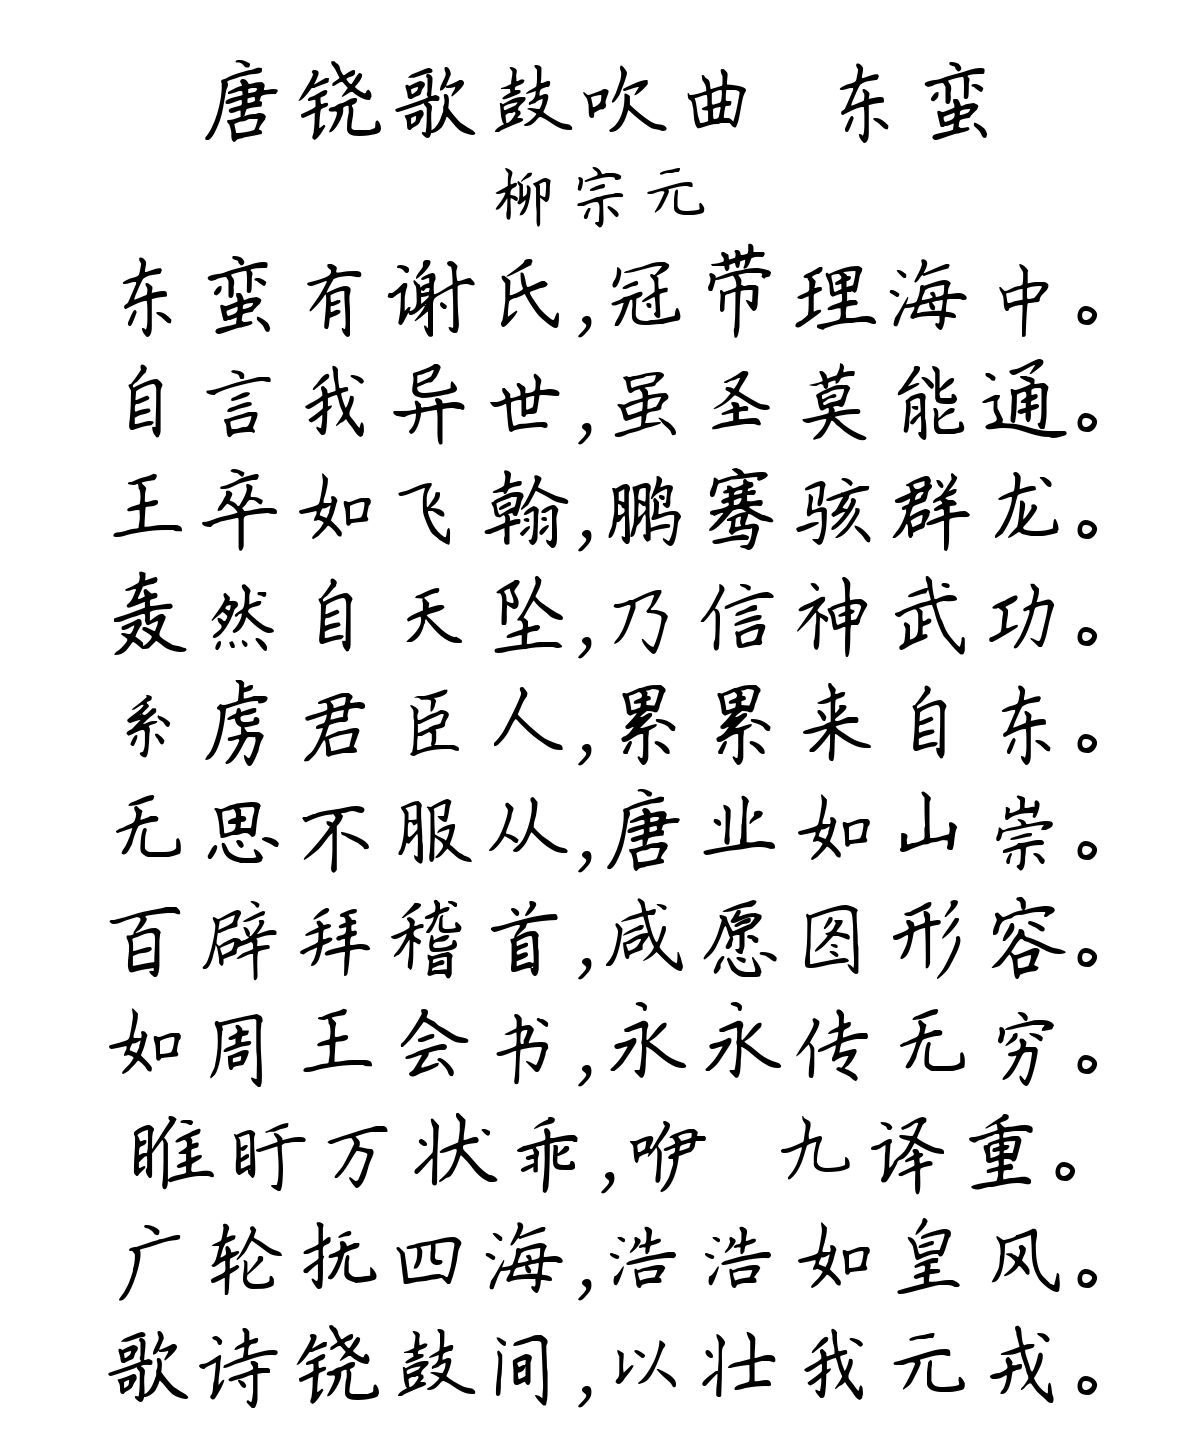 唐铙歌鼓吹曲 东蛮
柳宗元
东蛮有谢氏,冠带理海中。
自言我异世,虽圣莫能通。
王卒如飞翰,鹏骞骇群龙。
轰然自天坠,乃信神武功。
系虏君臣人,累累来自东。
无思不服从,唐业如山崇。
百辟拜稽首,咸愿图形容。
如周王会书,永永传无穷。
睢盱万状乖,咿 九译重。
广轮抚四海,浩浩如皇风。
歌诗铙鼓间,以壮我元戎。